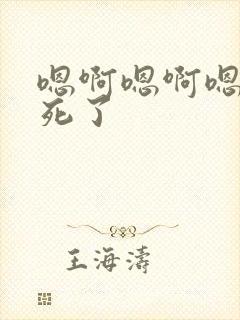 嗯啊嗯啊嗯
死了
王海涛